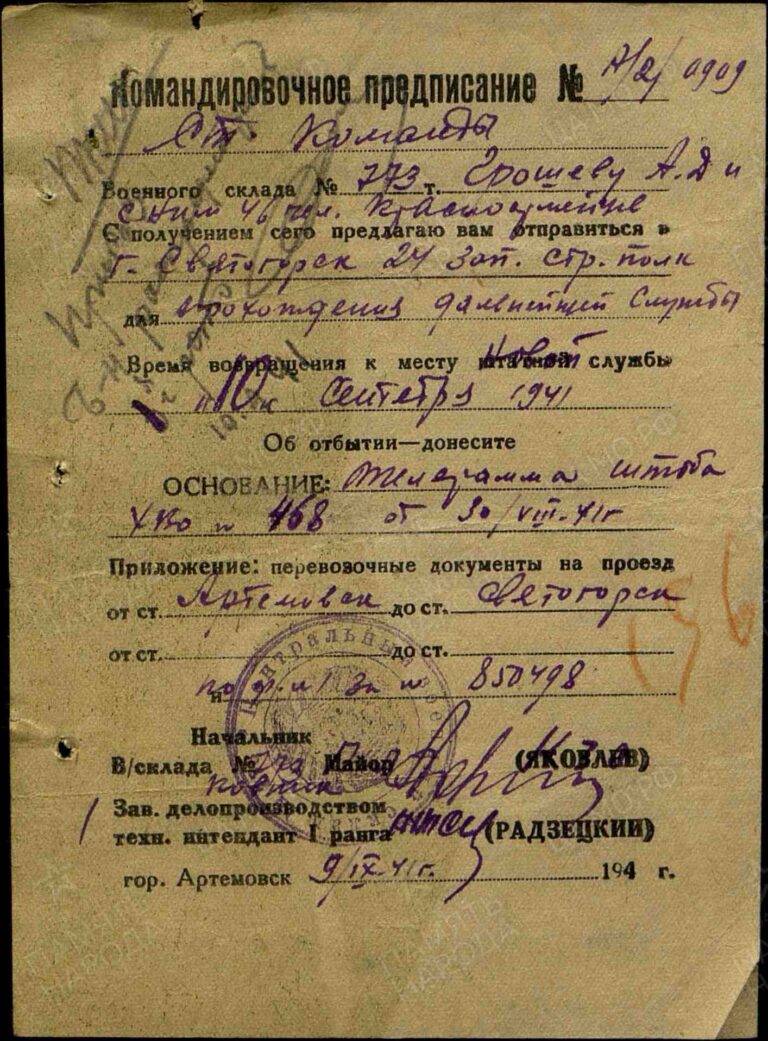 Командировочное предписание № А/2/0909
Ст. Команды
Военного склада № 773 т. Ерошеву А.Д и
с ним 46 чел. Красноармейце
С получением сего предлагаю вам отправиться в
г. Святогорск 24 зап. стр. полк
для прохождения дальнейшей службы
Время возвращения к месту новой службы
"10" Сентября 1941
Об отбытии—донесите
ОСНОВАНИЕ: телеграмма штаба
ХВО № 468 от 30/VIII-41г
Приложение: перевозочные документы на проезд
от ст. Артемовск до ст. Святогорск
от ст. до ст.
и по ф. № 1 за № 850498
Начальник
В/склада № Майор (ЯКОВЛЕВ)
Зав. делопроизводством
техн. интендант I ранга (РАДЗЕЦКИЙ)
гор. Артемовск 9/IX-41г. 194 г.
156